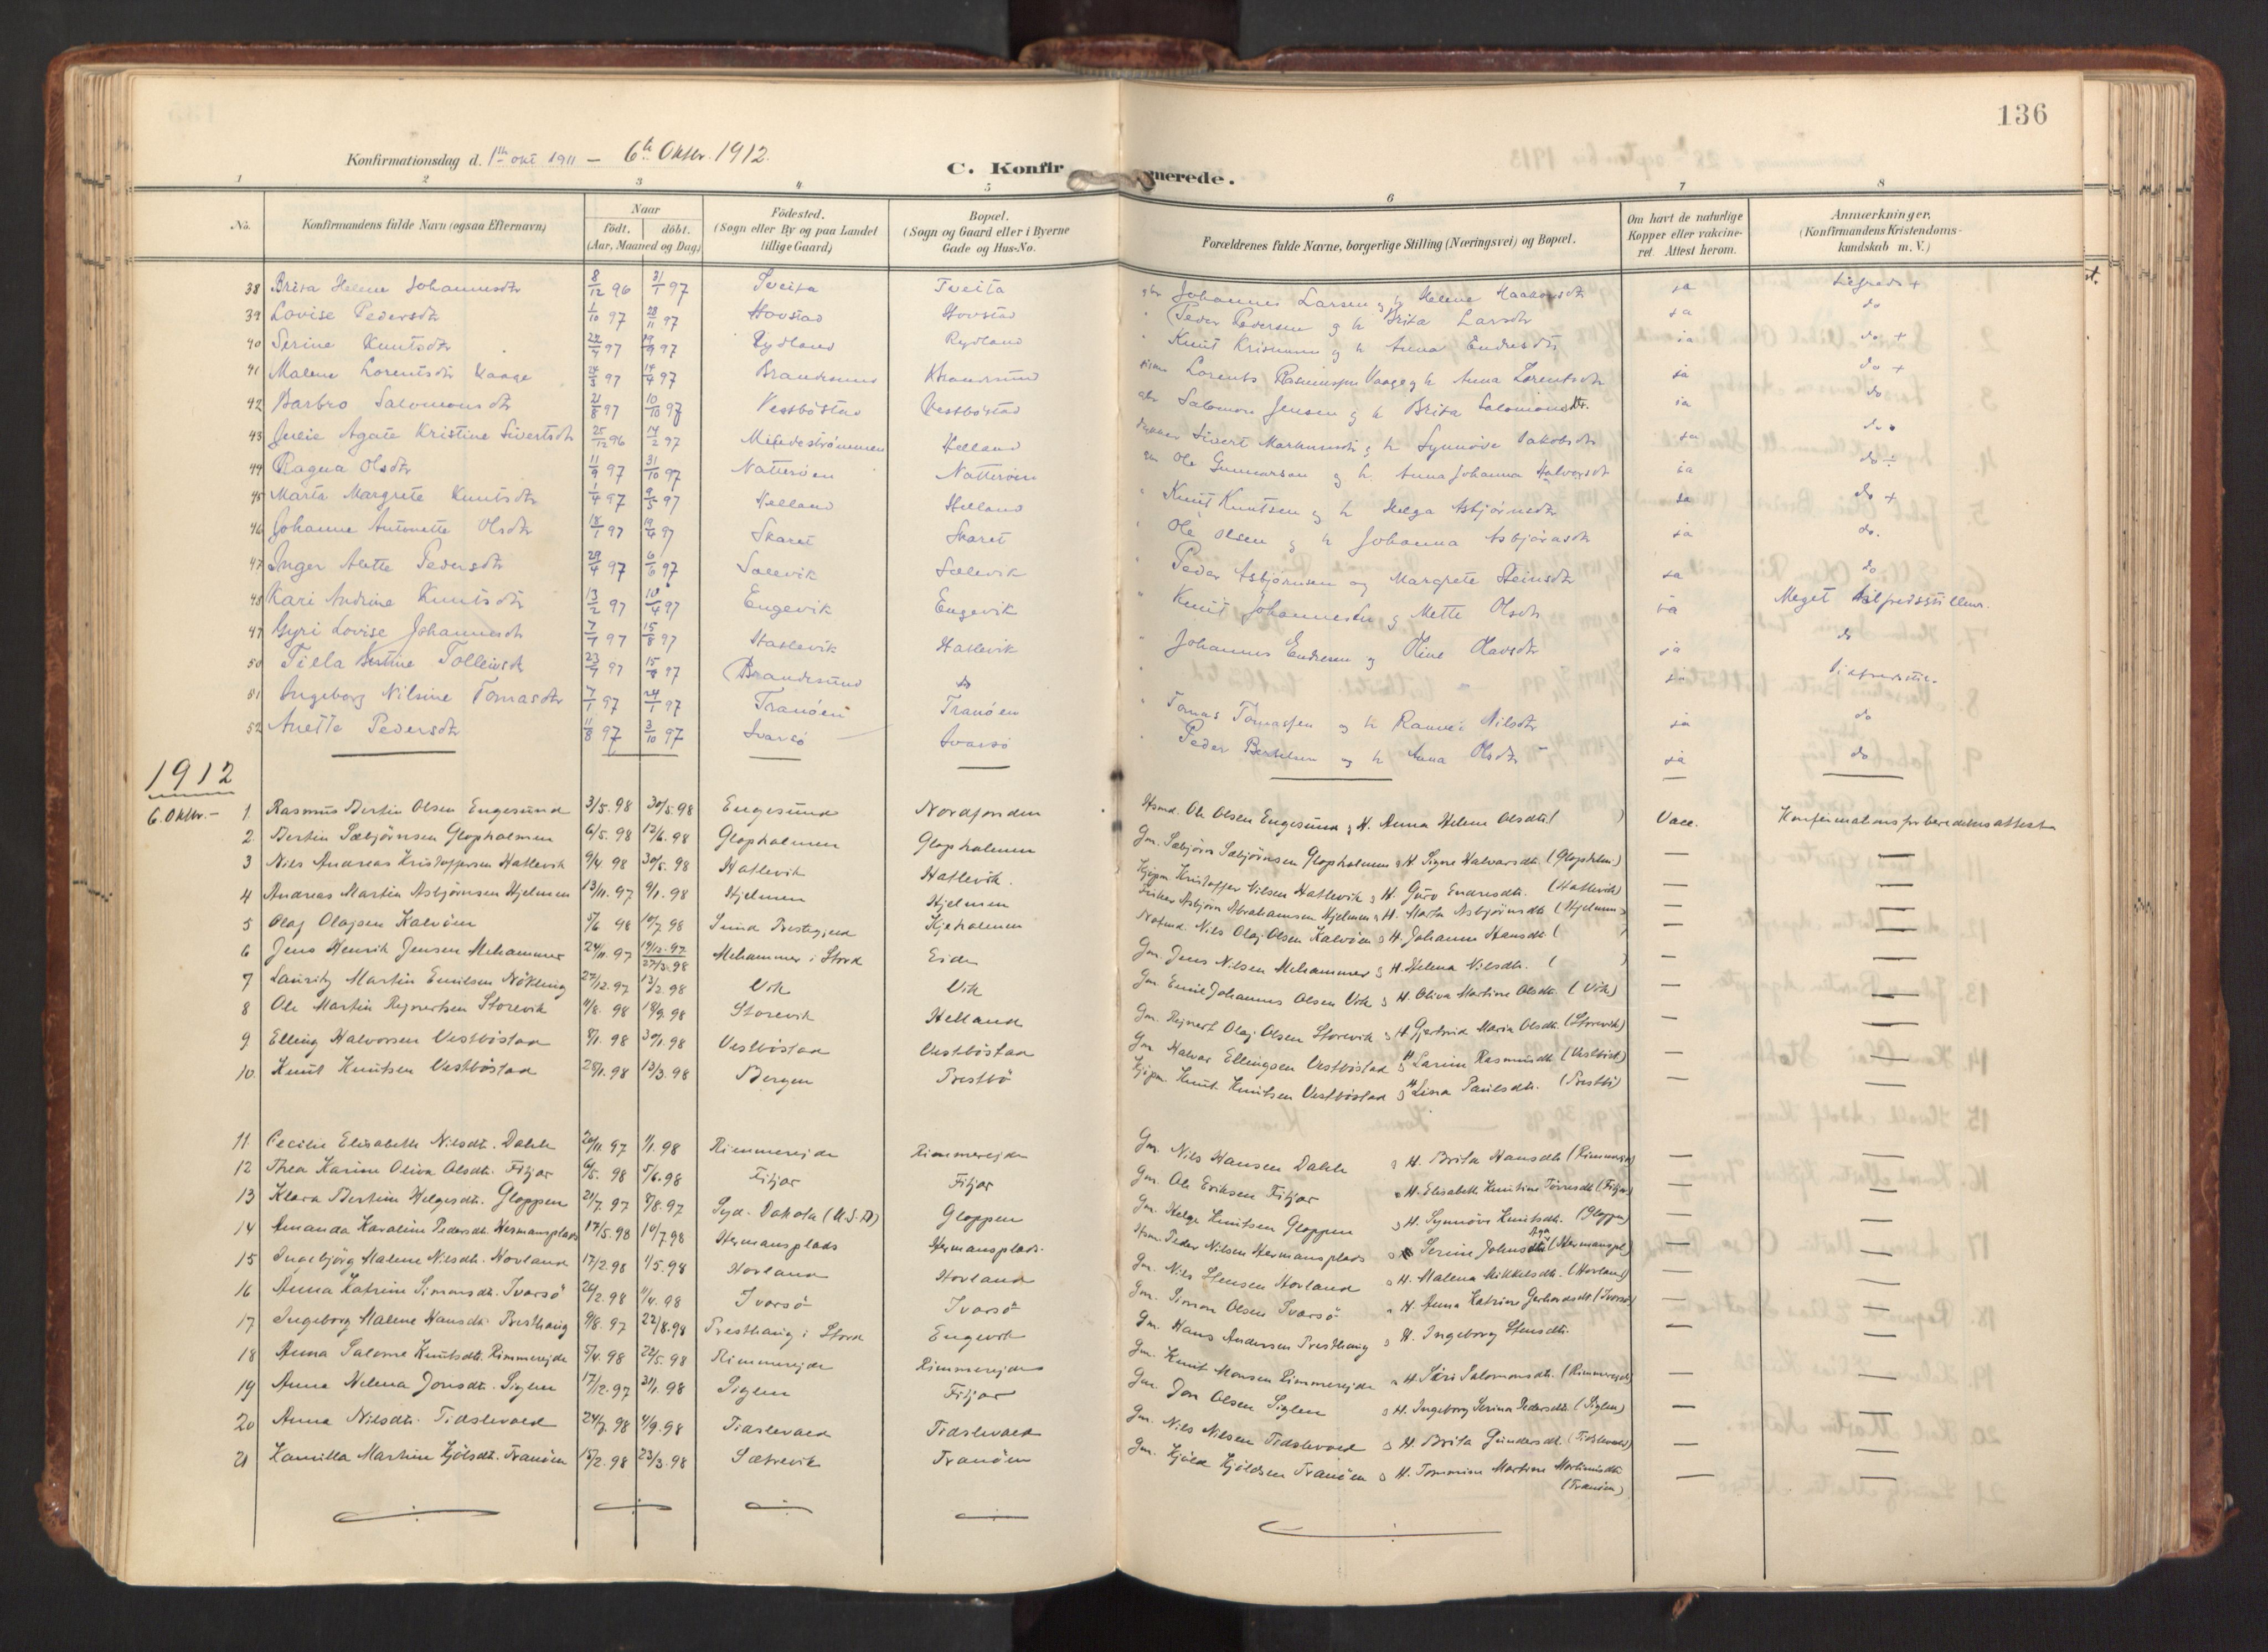 136
Konfirmationsdag d. 1th okt 1911 — 6h Oktbr. 1912.
C. Konfirmerede.
1 2 3 4 5 6 7 8
No. Konfirmandens fulde Navn (ogsaa Efternavn) Naar födt. döbt. (Aar, Maaned og Dag) Födested. (Sogn eller By og paa Landet tillige Gaard) Bopæl. (Sogn og Gaard eller i Byerne Gade og Hus-No. Forældrenes fulde Navne, borgerlige Stilling (Næringsvei) og Bopæl. Om havt de naturlige Kopper eller vakcineret. Attest herom. Anmærkninger. (Konfirmandens Kristendomskundskab m. V.)
38 Brita Helene Johannesdtr 8/12 96 31/1 97 Tveita Tveita Johannes Larsen g h Helene Haakonsdtr ja
39 Lovise Pedersdtr 1/10 97 28/11 97 Hovstad Hovstad Peder Pedersen g h Brita Larsdtr ja do
40 Serine Knutsdtr 97 97 Rydland Rydland Knut g h Anna Endresdtr ja do +
41 Malene Lorentsdtr Vaage 97 97 Brandesund Brandesund Lorents Rasmussen Vaage g h Anna Lorentsdtr ja do +
42 Barbro Salomonsdtr 21/8 97 10/10 97 Vestböstad Vestböstad Salomon Jensen g h Brita Salomonsdtr. ja do
43 Julie Agate Kristine Sivertsdtr 25/12 96 14/2 97 Helland Sivert g h Synnöve Jakobsdtr ja do
44 Ragna Olsdtr 11/9 97 31/10 97 Natteröen Natteröen Ole Gunnarson g h Anna Johanna Halvorsdtr ja do ÷
45 Marta Margrete Knutsdtr 1/4 97 9/5 97 Helland Helland Knut Knutsen g h Helga Asbjörnsdtr ja do +
46 Johanne Antonette Olsdtr 18/1 97 19/4 97 Skaret Skaret Ole Olsen g h Johanna Asbjörnsdtr ja do.
47 Inger Anette Pedersdtr 29/4 97 6/6 97 Sælevik Sælevik Peder Asbjörnsen og Margrete Steinsdtr ja do
48 Kari Andrine Knutsdtr 13/2 97 10/4 97 Engevik Engevik Knut Johannesen g Mette Olsdtr ja Meget tilfredsstillen.
47 Gyri Lovise Johannesdtr 7/7 97 15/8 97 Hatlevik Hatlevik Johannes Endresen og Oline Olavsdtr ja do
50 Tiela Bertine Tolleivsdtr 23/4 97 15/8 97 Brandesund do ja
51 Ingeborg Nilsine Tomasdtr 7/1 97 24/1 97 Tranöen Tranöen Tomas Tomassen og h Ranvei Nilsdtr ja do
52 Anette Pedersdtr 11/8 97 3/10 97 Ivarsö Ivarsö Peder Bertelsen og h Anna Olsdtr ja do
1912
6. Oktbr.— 1. Rasmus Bertin Olsen Engesund 3/5. 98 30/5. 98 Engesund Nordfonden Hsmd. Ole Olsen Engesund g H. Anna Helene Olsdtr. ( ) Vacc. Konfirmationsforberedelsesattest
2. Bertin Sæbjörnsen Glopholmen 6/5. 98 12/6. 98 Glopholmen Glopholmen Gm. Sæbjörn Sæbjörnsen Glopholmen g H Signe Halvorsdtr. (Glopholm.) — —
3 Nils Andreas Kristoffersen Hatlevik 9/4 98 30/5. 98 Hatlevik Hatlevik. Kjøpm. Kristoffer Nilsen Hatlevik g H. Guro Endresdtr. (Hatlevik) — —
4 Andreas Martin Asbjörnsen Hjelmen 13/11. 97 9/1. 98 Hjelmen Hjelmen Fisker Asbjörn Abrahamsen Hjelmen g H. Marta Asbjörnsdtr. (Hjelmen) — —
5 Olaf Olafsen Kalvöen 5/6 98 10/7 98 Sund Prestegjeld Kjeholmen Nils Olaj Olsen Kalvöen g H. Johanne Hansdtr. ( ) — —
6 Jens Henrik Jensen Mehammer 24/11. 97 19/12. 97 27/3. 98 Mehammer i Stord Eide Gm. Jens Nilsen Mehammer g H. Helena Nilsdtr. ( ) — —
7 Lauritz Martin Emilsen Nökling 27/12. 97 13/2. 98 Vik Vik Gm. Emil Johannes Olsen Vik g H. Oliva Martine Olsdtr. (Vik) — —
8 Ole Martin Rejnertsen Storevik 11/8. 98 18/9. 98 Storevik Helland Gm. Rejnert Olaj Olsen Storevik g H. Gjertrud Maria Olsdtr. (Storevik) — —
9. Elling Halvorsen Vestböstad 8/1. 98 30/1. 98 Vestböstad Vestböstad Gm Halvor Ellingsen Vestböstad g H Larine Rasmusdtr (Vestböst) — —
10. Knut Knutsen Vestböstad 25/1. 98 13/3. 98 Bergen Prestbö Kjøpm. Knut Knutsen Vestböstad g H Lisa Paulsdtr. (Prestbö) — —
11. Cecilie Elisabeth Nilsdtr. Dahle 20/11. 97 1/1. 98 Rimmerejde Rimmerejde Gm. Nils Hansen Dahle g H. Brita Hansdtr (Rimmerejde) — —
12 Thea Karine Oliva Olsdtr. Fitjar 6/5. 98 5/6. 98 Fitjar Fitjar Gm. Ole Eriksen Fitjar g H. Elisabeth Knutine Törresdtr (Fitjar) — —
13 Klara Bertine Helgesdtr. Gloppen 21/7. 97 8/8. 97 Syd-Dakota (U.S.A) Gloppen Gm. Helge Knutsen Gloppen g H. Synnöve Knutsdtr. (Gloppen) — —
14 Amanda Karoline Pedersdtr. Hermansplads 17/5. 98 10/7. 98 Hermansplads Hermansplads. Hsm. Peder Nilsen Hermansplads g Serine Johnsdtr (Hermanspl.) — —
15 Ingebjörg Malene Nilsdtr. Hovland 17/2. 98 1/5. 98 Hovland Hovland Gm. Nils Stensen Hovland g H. Malena Mikkelsdtr. (Hovland) — —
16 Anna Katrine Simonsdtr. Ivarsö 26/2. 98 11/4. 98 Ivarsö Ivarsö Gm. Simon Olsen Ivarsö g H. Anna Katrine Gerhardsdtr (Ivarsö) — —
17 Ingeborg Malene Hansdtr. Presthaug 9/8. 97 22/8. 98 Presthaug i Stord Engevik Gm. Hans Andersen Presthaug g H. Ingeborg Stensdtr. — —
18 Anna Salome Knutsdtr. Rimmerejde 5/4. 98 22/5. 98 Rimmerejde Rimmerejde Gm. Knut Monsen Rimmerejde g H. Siri Salomonsdtr. (Rimmerejde) — —
19 Anna Helena Jonsdtr. Siglen 17/12. 97 21/1. 98 Siglen Fitjar Gm. Jon Olsen Siglen g H. Ingeborg Serina Pedersdtr. (Siglen) — —
20 Anna Nilsdtr. Tidslevold 24/7. 98 4/9. 98 Tidslevold Tidslevold Gm. Nils Nilsen Tidslevold g H. Brita Gundersdtr. (Tidslevold) — —
21 Kamilla Martine Kjölsdtr. Tranöen 15/2. 98 23/3. 98 Sætrevik Tranöen Gm. Kjöld Kjöldsen Tranöen g H. Tommine Martine Martinusdtr. (Tranöen) — —